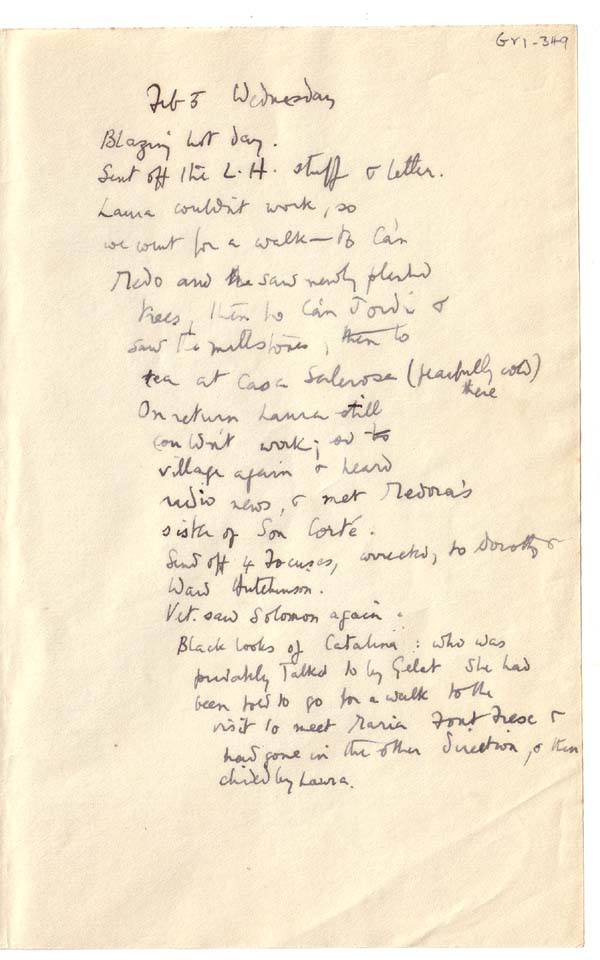 GV1-349
Feb 5 Wednesday
Blazing hot day.
Sent off the L.H. stuff & letter.
Laura couldn't work, so
we went for a walk — to Ca'n
Medo and saw newly planted
trees, then to Ca'n Jordi &
saw the millstones, then to
tea at Casa Salerosa (fearfully cold)
there
On return Laura still
couldn't work; so to
village again & heard
radio news, & met Medora's
sister of Son Corté.
Send off 4 Focuses, corrected, to Dorothy &
Ward Hutchinson.
Vet. saw Solomon again.
Black looks of Catalina: who was
privately talked to by Gelat She had
been told to go for a walk to the
visit to meet Maria Font Fresc &
had gone in the other direction, & then
chided by Laura.